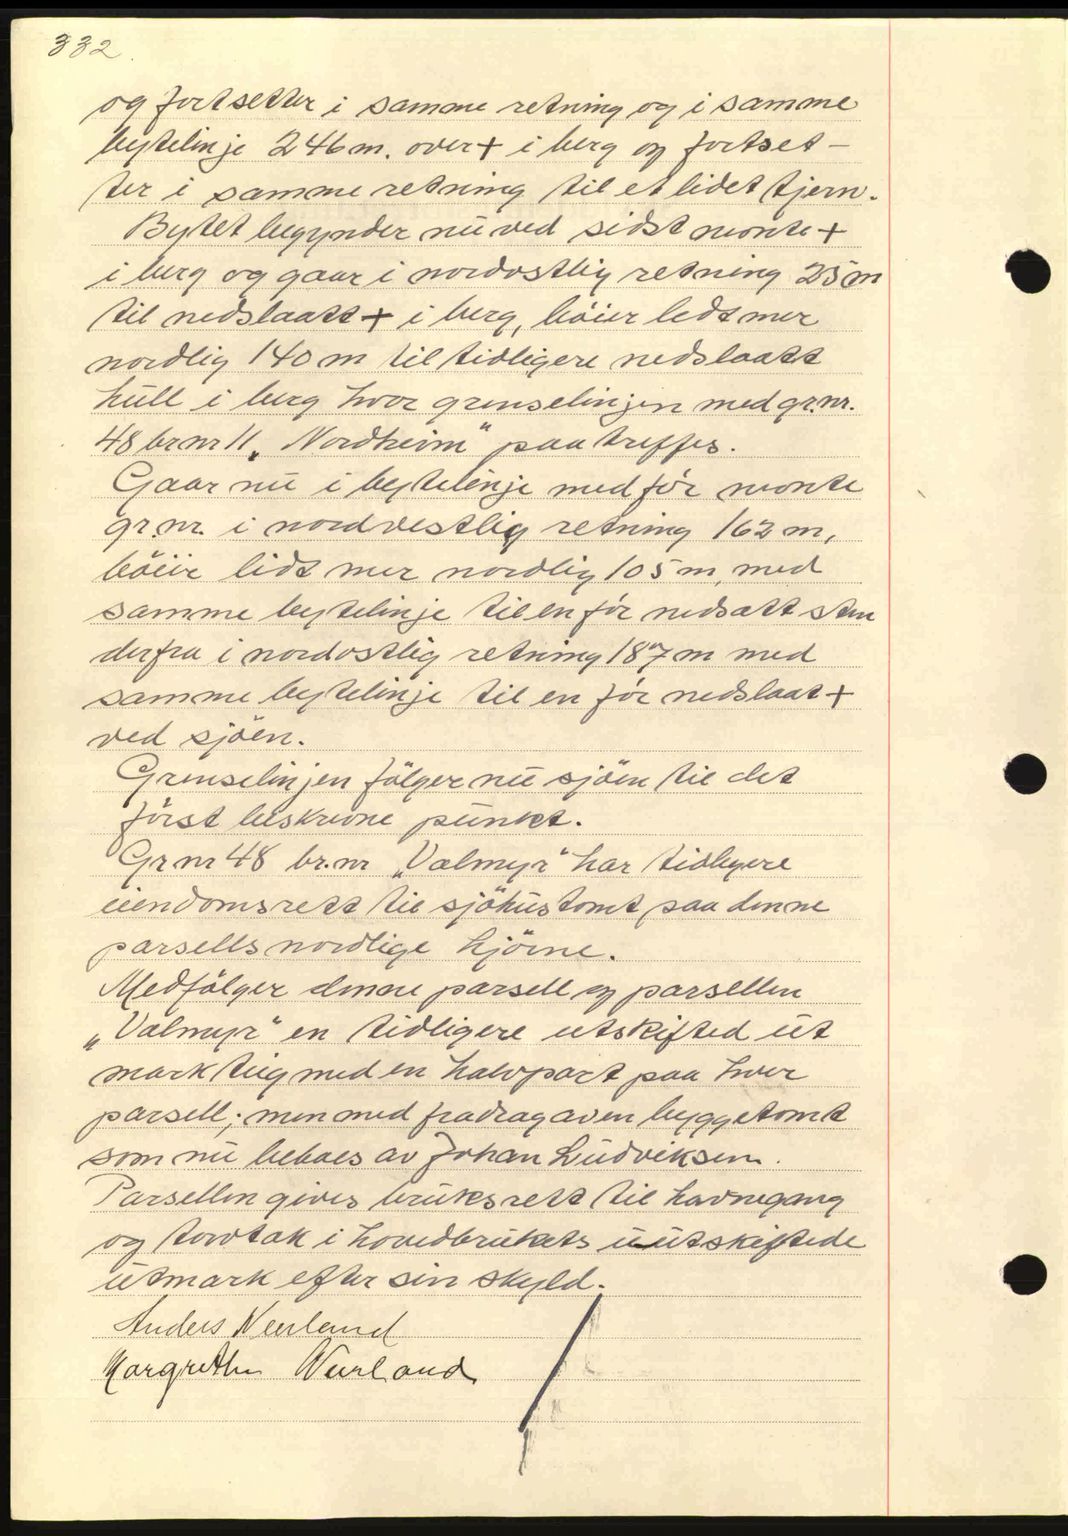 332
og fortsetter i samme retning og i samme
bytelinje 246 m. over + i berg og fortset-
ter i samme retning til et lidet tjern.
Bytet begynder nu ved sidst nevnte +
i berg og gaar i nordostlig retning 25 m
til nedslaatt + i berg, böier lidt mer
nordlig 140 m til tidligere nedslaatt
hull i berg hvor grenselinjen med gr.nr.
48 br nr 11 „Nordheim" paa treffes.
Gaar nu i bytelinje med för nevnte
gr.nr. i nordvestlig retning 162 m,
böiir lidt mer nordlig 105 m, med
samme bytelinje til en för nedsatt sten
derfra i nordostlig retning 187 m med
samme bytelinje til en för nedslaat +
ved sjöen.
Grenselinjen fölger nu sjöen til det
först beskrevne punkt.
Gr nr 48 br.nr „Valmyr" har tidligere
eiendomsrett til sjöhustomt paa denne
parsells nordlige hjörne.
Medfölger denne parsell og parsellen
„Valmyr" en tidligere utskifted ut
mark teig med en halvpart paa hver
parsell; men med fradrag av en byggetomt
som nu beboes av Johan Ludviksen.
Parsellen gives bruksrett til havnegang
og torvtak i hovedbrukets uutskiftede
utmark efter sin skyld.
Anders Neerland
Margrethe Neerland